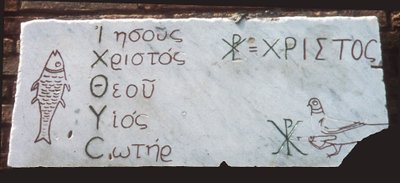 Ἰησοῦς
Χριστός
Θεοῦ
Υἱός
Σωτήρ
☧ = ΧΡΙΣΤΟΣ
☧